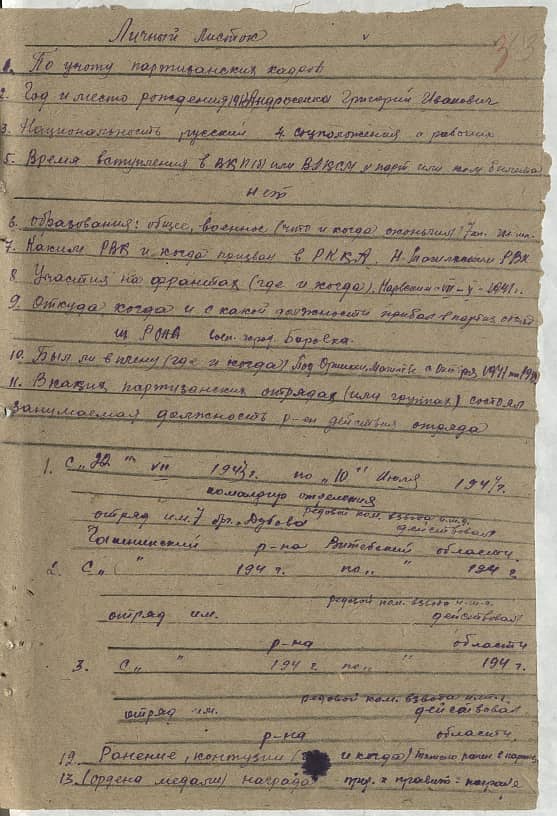 Личный листок
1. По учоту партизанских кадров
2. Год и место рождения Андросенка Григорий Иванович
3. Национальность русский 4. соцположения с рабочих
5. Время вступления в ВКП(б) или ВЛКСМ № парт или ком билета
нет
6. Образования: общее, военное (что и когда окончил) 7 кл.
7. Каким РВК и когда призван в РККА. РВК
8. Участия на франтах (где и когда), Нарвский - VII - X - 1941 г.
9. Откуда когда и с какой должности прибыл в партиз.
из РОНА воен. город. Боровка.
10. Был ли в плену (где и когда) Под Оршей,
11. В каких партизанских отрядах (или группах) состоял
занимаемая должность р-он действия отряда
1. С „22" VII 194 г. по „10" Июля 194 г.
командир отделения
редовой ком. взвота и.т.д.
отряд им. 7 бр. Дубова действовал
Чашникский р-на Витебский области.
2. С „ " 194 г. по „ " 194 г.
редовой ком. взвота и.т.д.
отряд им. действовал
р-на области
3. С „ " 194 г. по „ " 194 г.
редовой ком. взвота и.т.д.
отряд им. действовал
р-на области.
12. Ранение, контузии и когда) ранен в
13. (ордена медали) награда